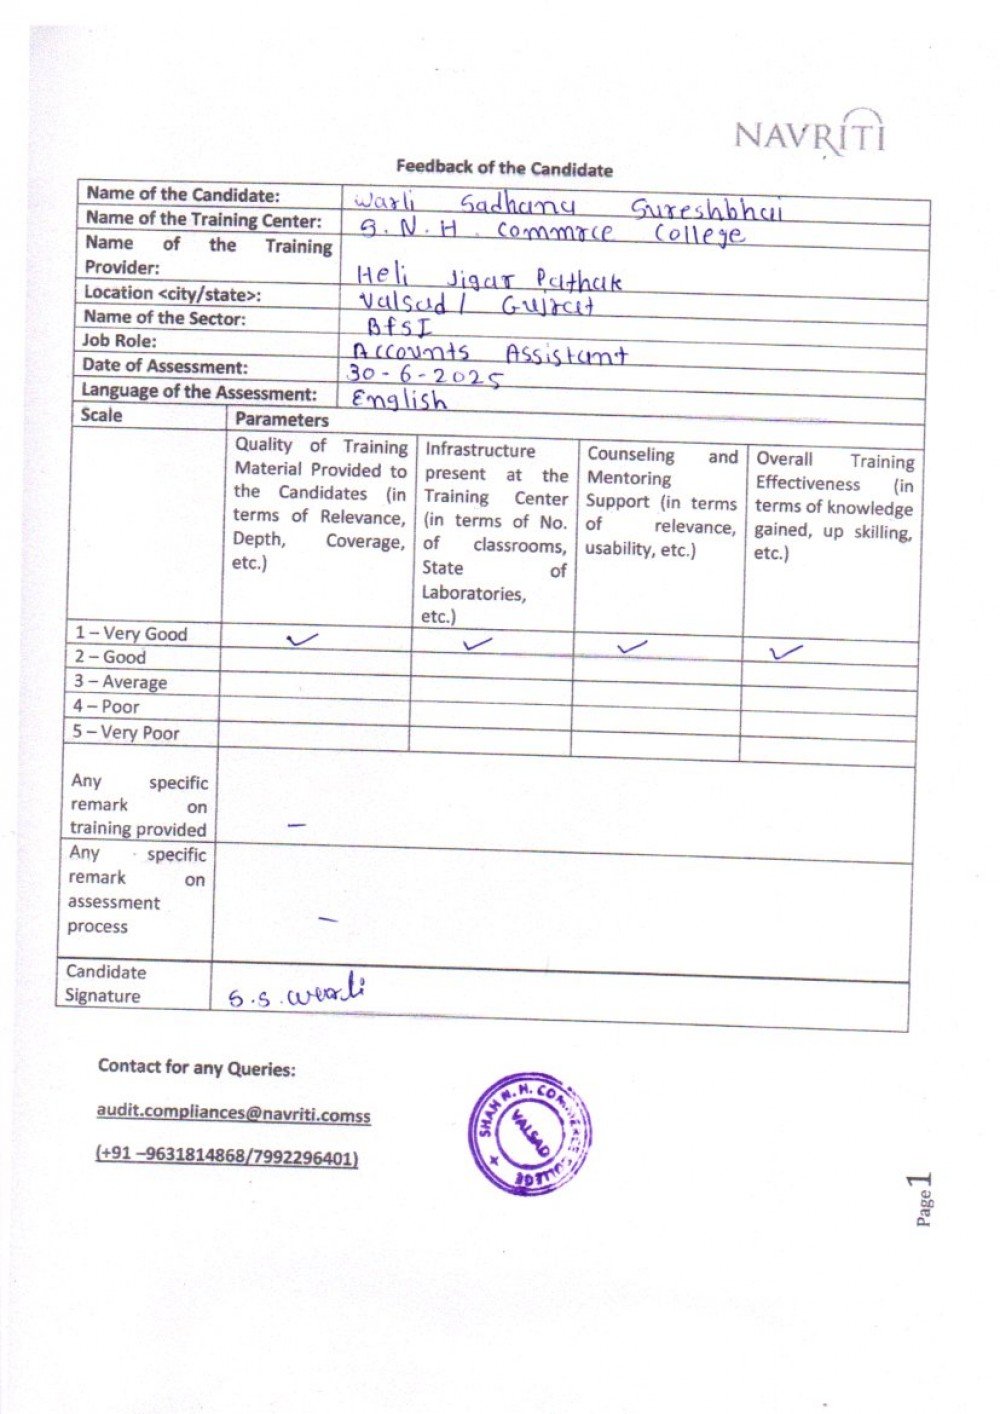 NAVRITI
Feedback of the Candidate
Name of the Candidate: Warli Sadhana Sureshbhai
Name of the Training Center: S.N.H. Commrce College
Name of the Training
Provider: Heli Jigar Pathak
Location <city/state>: Valsad / Gujrat
Name of the Sector: BfSI
Job Role: Accounts Assistant
Date of Assessment: 30-6-2025
Language of the Assessment: English
Scale Parameters
Quality of Training
Material Provided to
the Candidates (in
terms of Relevance,
Depth, Coverage,
etc.)
Infrastructure
present at the
Training Center
(in terms of No.
of classrooms,
State of
Laboratories,
etc.)
Counseling and
Mentoring
Support (in terms
of relevance,
usability, etc.)
Overall Training
Effectiveness (in
terms of knowledge
gained, up skilling,
etc.)
1 – Very Good ✓ ✓ ✓ ✓
2 – Good
3 – Average
4 – Poor
5 – Very Poor
Any specific
remark on
training provided –
Any specific
remark on
assessment
process –
Candidate
Signature S.S. Warli
Contact for any Queries:
audit.compliances@navriti.comss
(+91 –9631814868/7992296401)
SHAH N. H. COMMERCE COLLEGE
VALSAD
Page 1